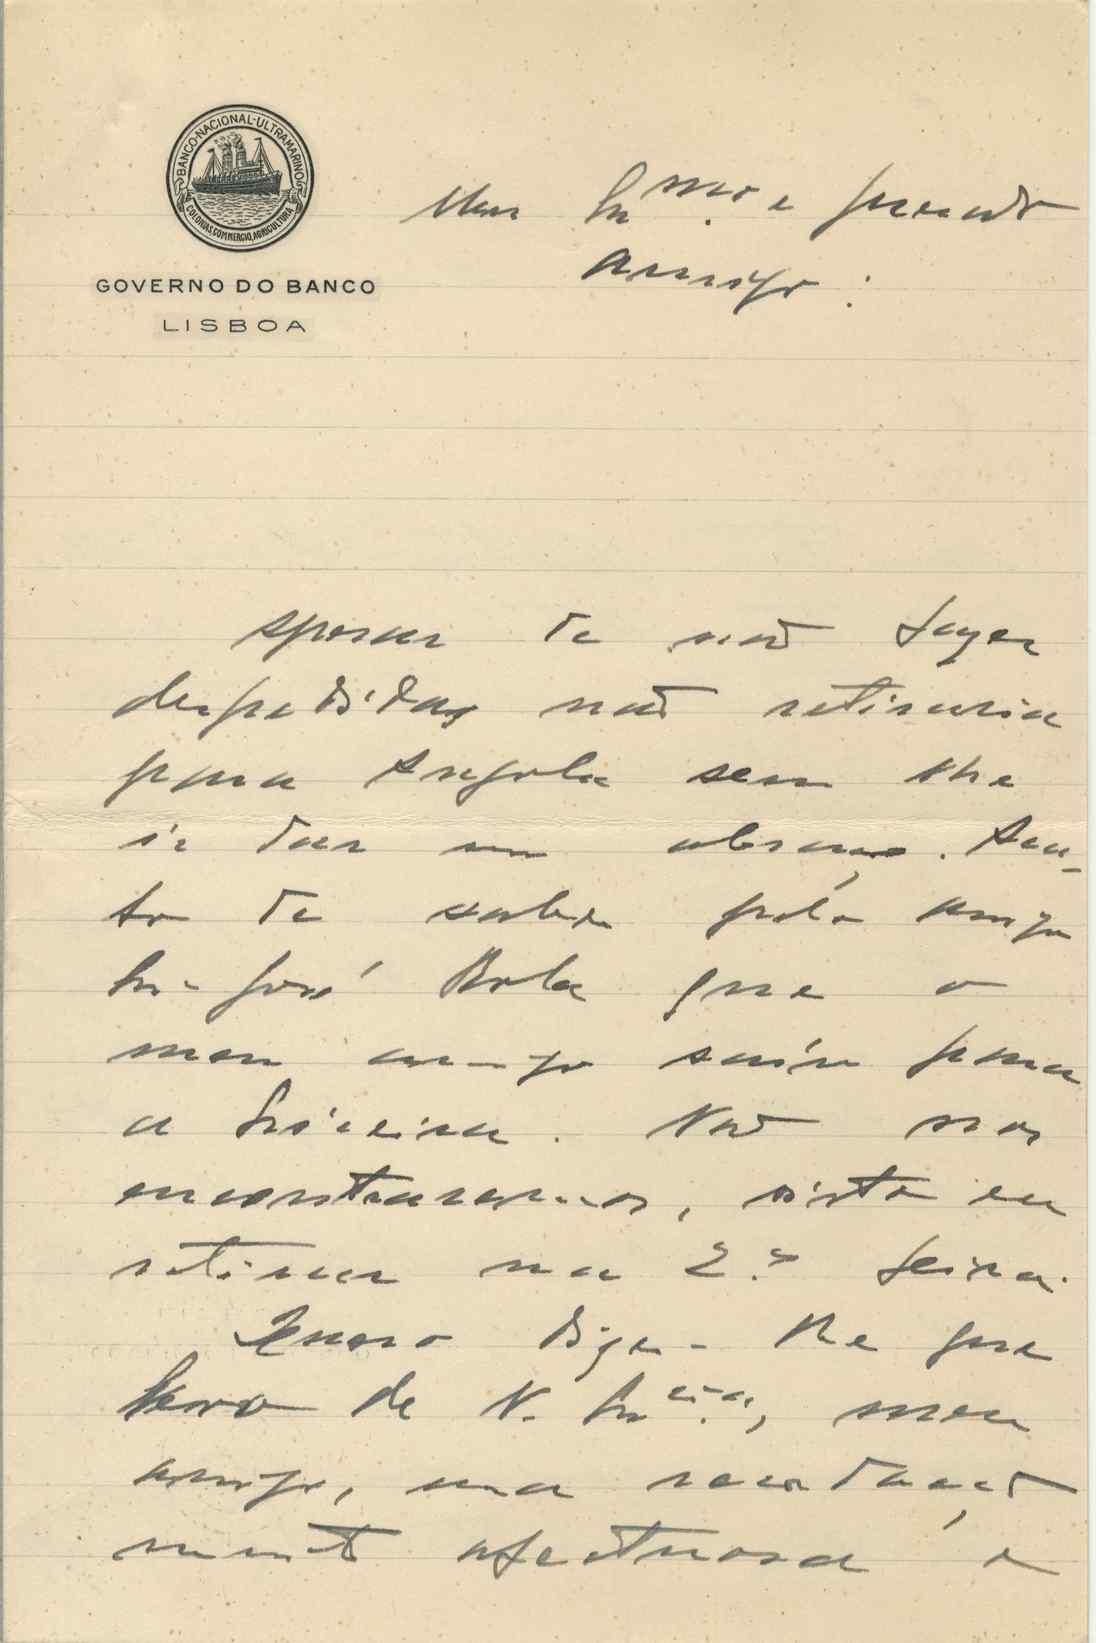 BANCO·NACIONAL·ULTRAMARINO
COLONIAS, COMMERCIO, AGRICULTURA
GOVERNO DO BANCO
LISBOA
Meu Ex.mo e presado
Amigo:
Apesar de não fazer
despedidas não retiraria
para Angola sem lhe
ir dar um abraço. Acu-
so de saber pelo amigo
José que o
meu amigo saíu para
a Ericeira. Não nos
encontraremos, visto eu
retirar na 2.ª feira.
Quero dizer-lhe que
levo de V. Ex.cia, meu
amigo, uma recordação
muito afectuosa e